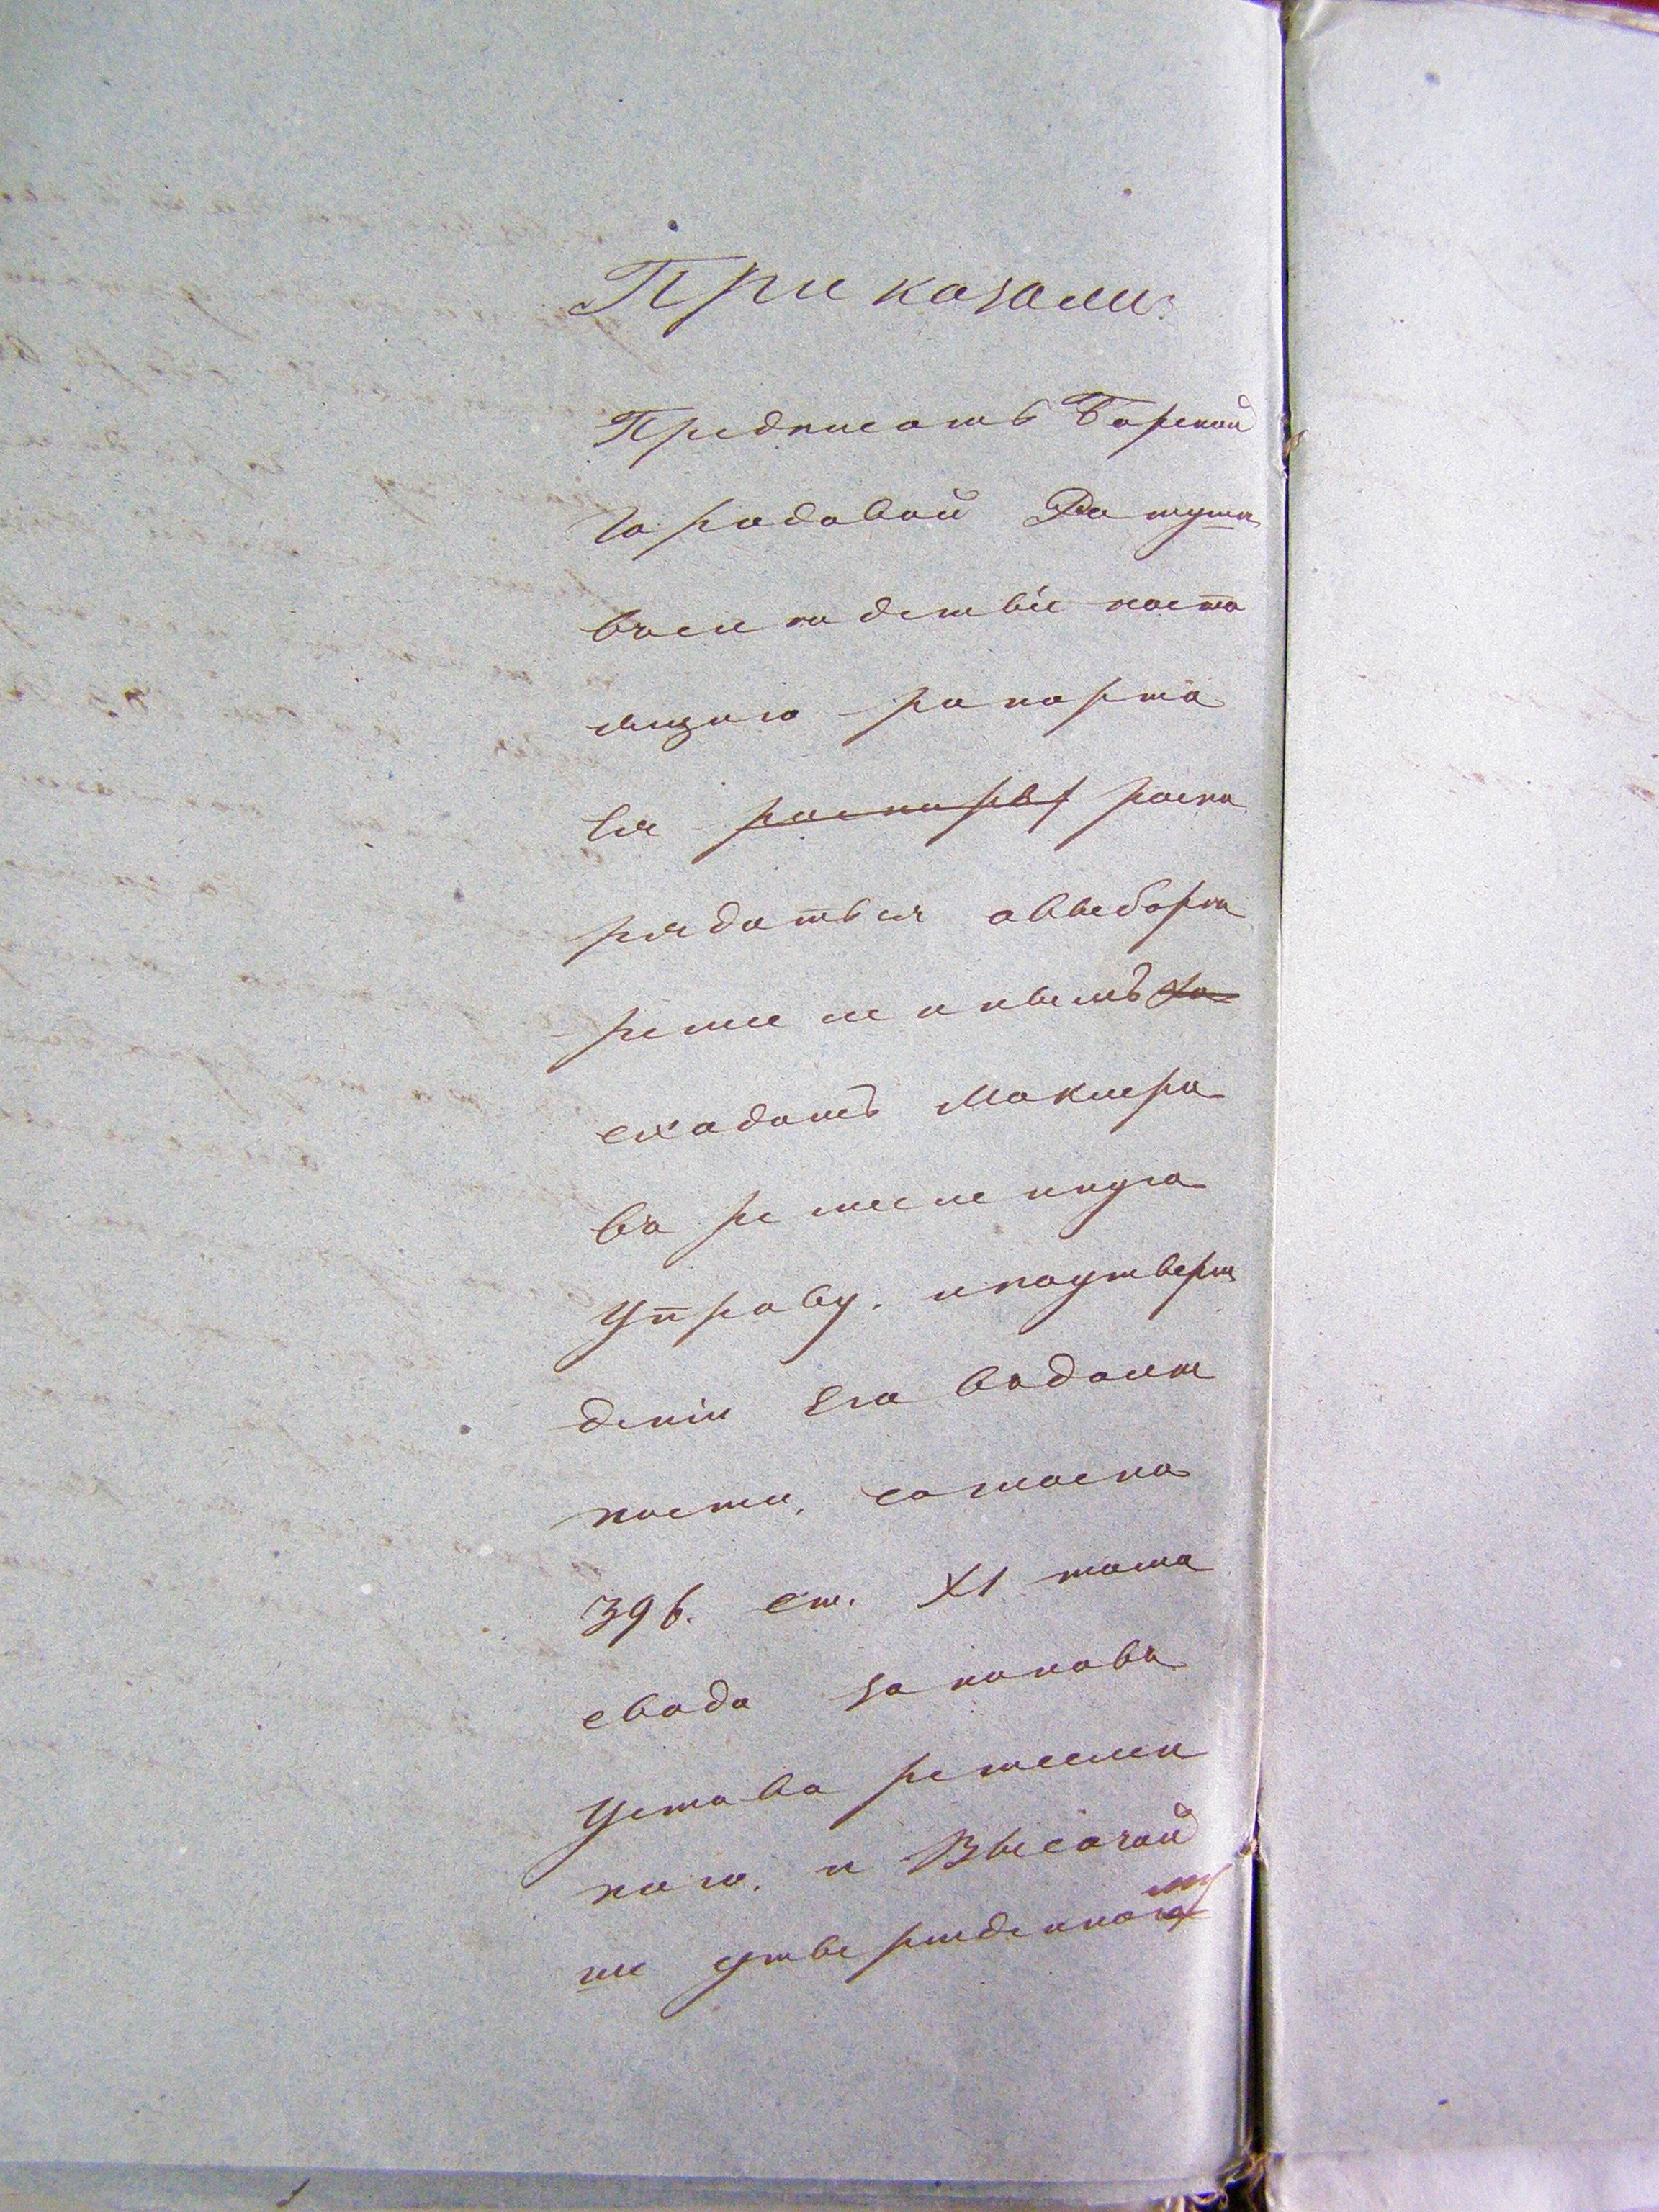 Приказали:
Предписать Борской
городовой Ратуше
въследствіе насто
ящаго рапорта
ся распоряд распо
рядиться овыборе
ремесленныемъ
складомъ Маклера
въ ремесленную
Управу. ипоутверж
деніи Его вдолж
ности, согласно
396. ст. XI тома
свода законовъ
Устава ремеслен
наго, и Высочай
ше утвержденному